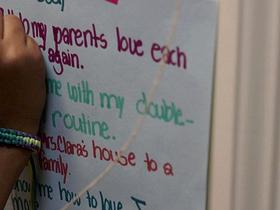 do my parents love each
again.
me with my double-
routine.
Mrs. Clara's house to a
family.
me how to love
more